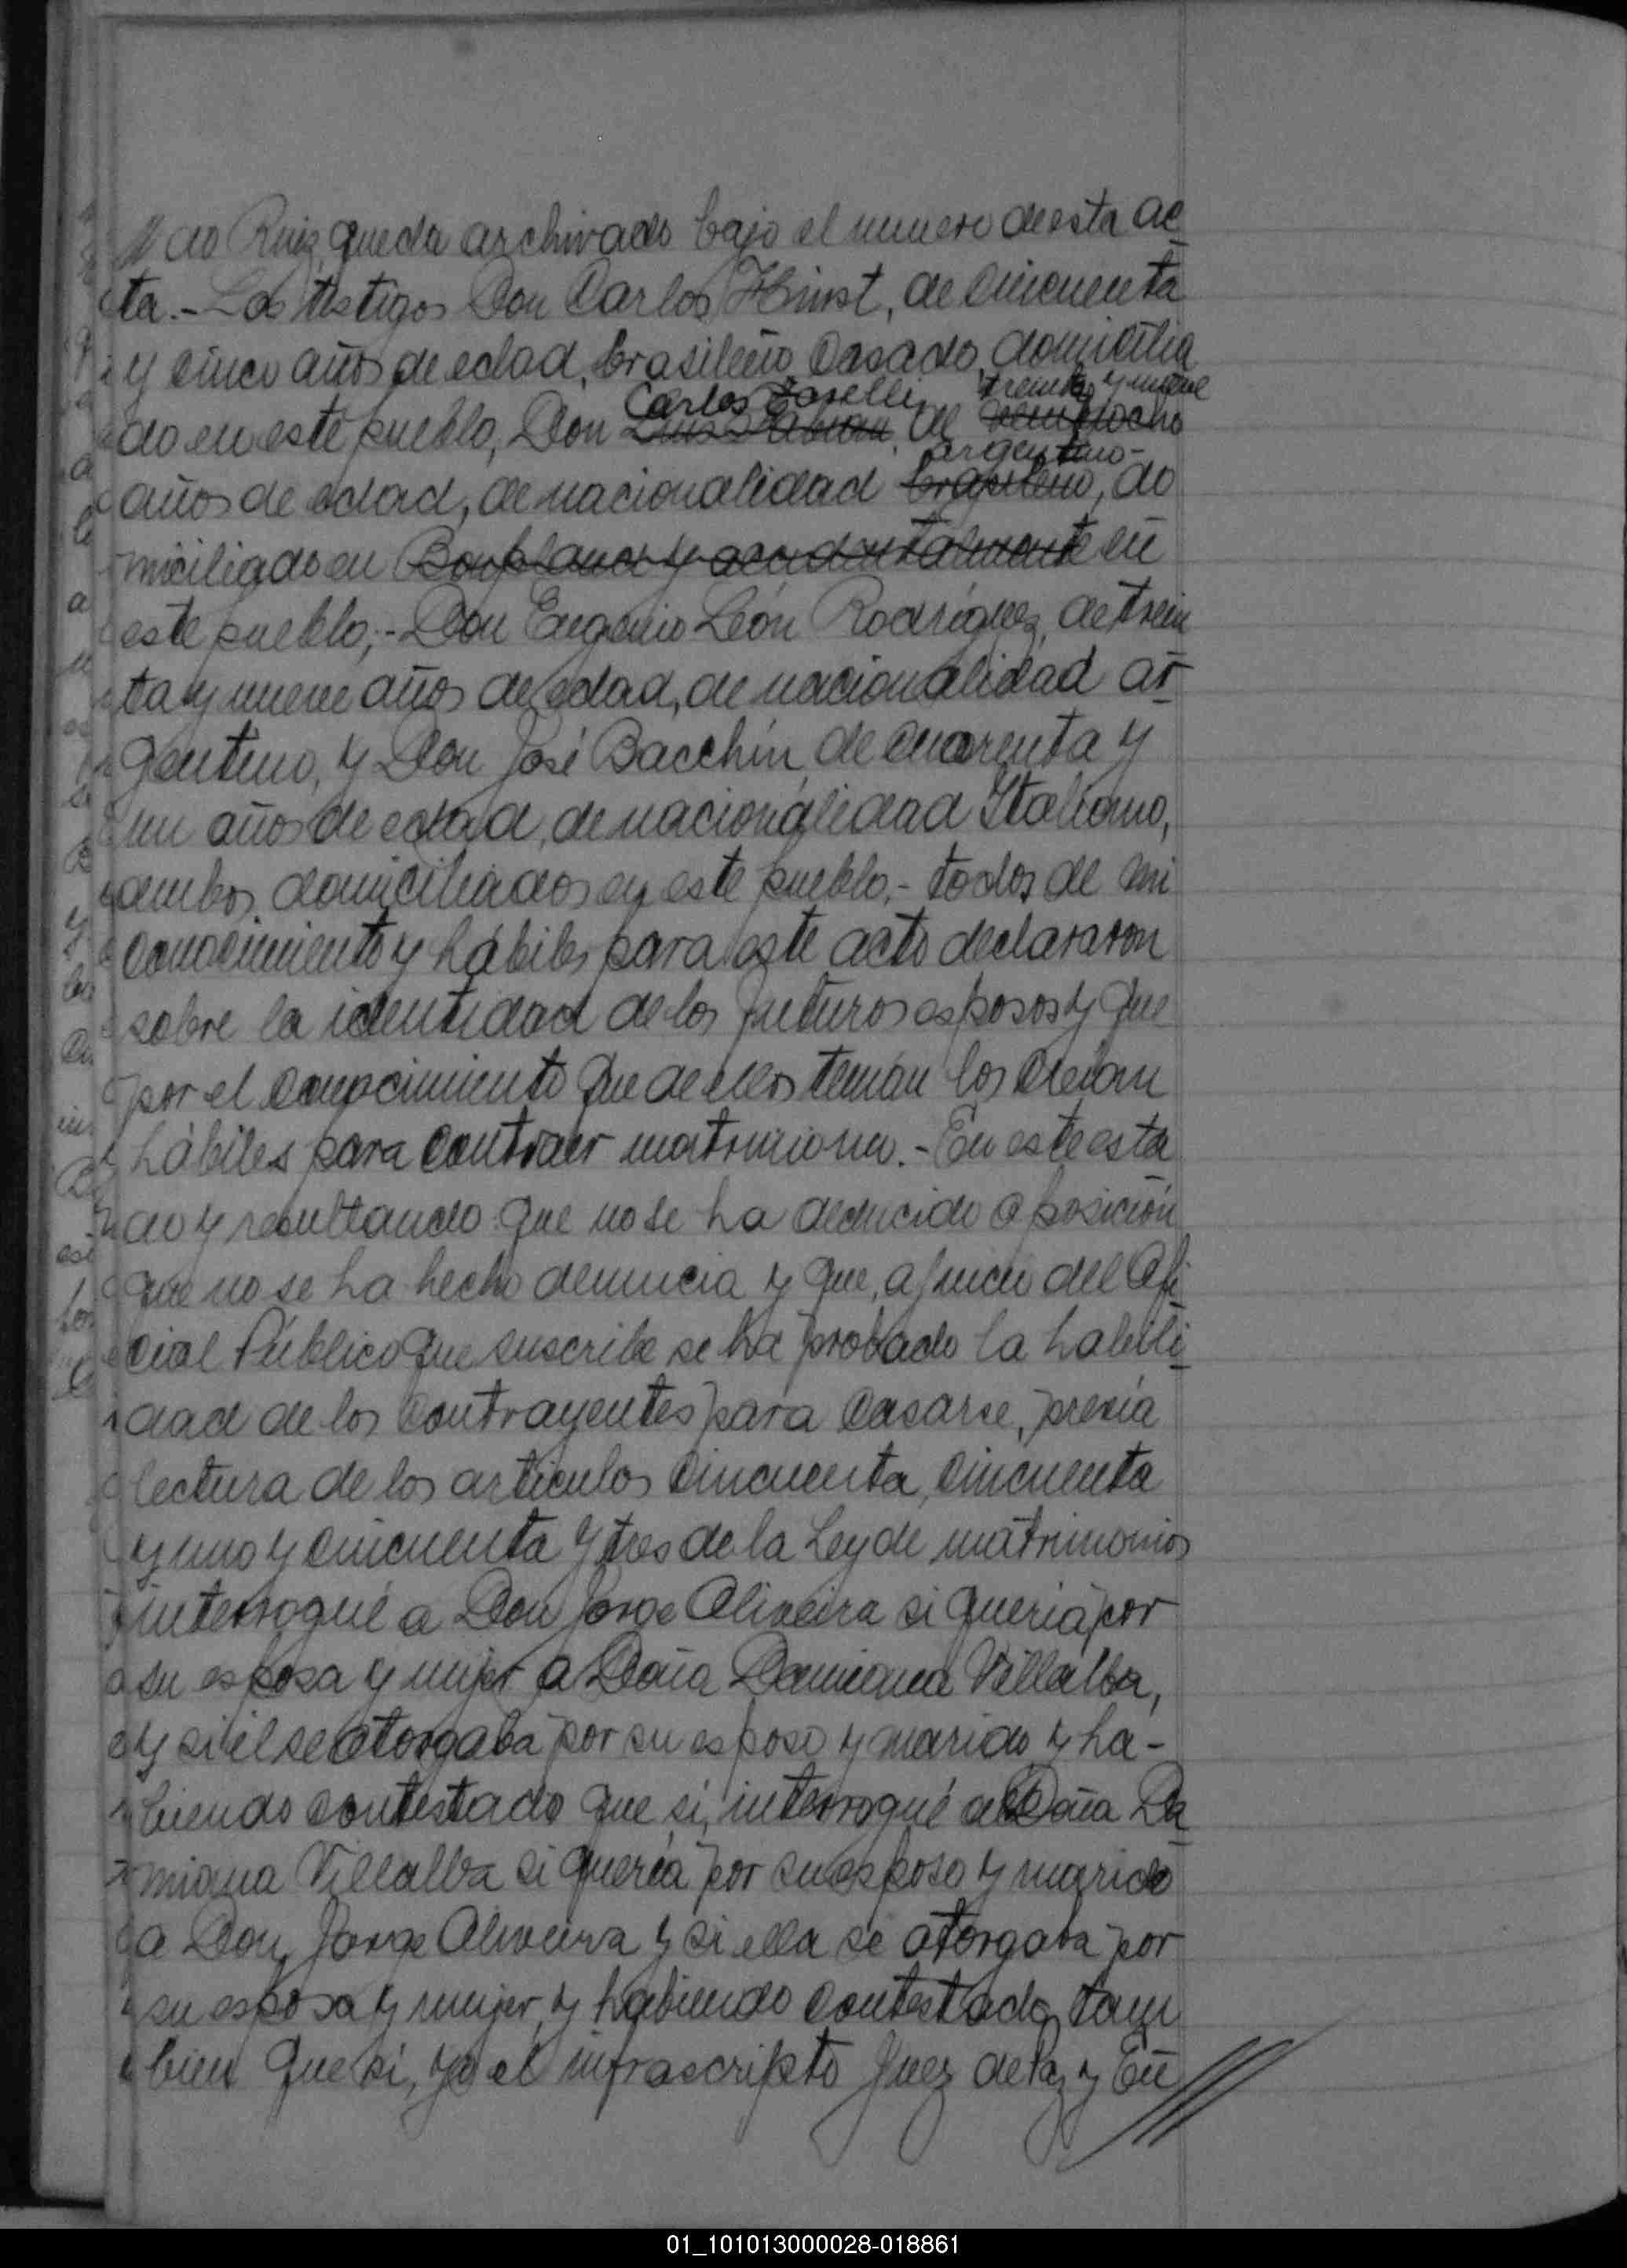 // do Ruiz, queda archivado bajo el numero de esta ac
ta.- Los testigos Don Carlos Hinst, de cincuenta
y cinco años de edad, brasileño, casado, domicilia
Carlos Toselli, treinta y nueve
do en este pueblo, Don Luis Fabian, de veintiocho
argentino-
años de edad, de nacionalidad brasileño, do
miciliado en Bonpland y accidentalmente en
este pueblo,- Don Eugenio León Rodríguez, de trein
ta y nueve años de edad, de nacionalidad ar
gentino, y Don José Bacchin, de cuarenta y
un años de edad, de nacionalidad Italiano,
ambos domiciliados en este pueblo,- todos de mi
conocimiento y hábiles para este acto declararon
sobre la identidad de los futuros esposos y que
por el conocimiento que de ellos tenían los creían
hábiles para contraer matrimonio.- En este esta
do y resultando que no se ha deducido oposición
que no se ha hecho denuncia y que, a juicio del Ofi
cial Público que suscribe se ha probado la habili
dad de los contrayentes para casarse, previa
lectura de los articulos cincuenta, cincuenta
y uno y cincuenta y tres de la Ley de matrimonios
interrogué a Don Jorge Oliveira si quería por
su esposa y mujer a Doña Damiana Villalba,
y si él se otorgaba por su esposo y marido, y ha-
biendo contestado que si, interrogué a Doña Da
miana Villalba si quería por su esposo y marido
a Don Jorge Oliveira y si ella se otorgaba por
su esposa y mujer, y habiendo contestado tam
bien que si, yo el infrascripto Juez de Paz y En
///
01_101013000028-018861